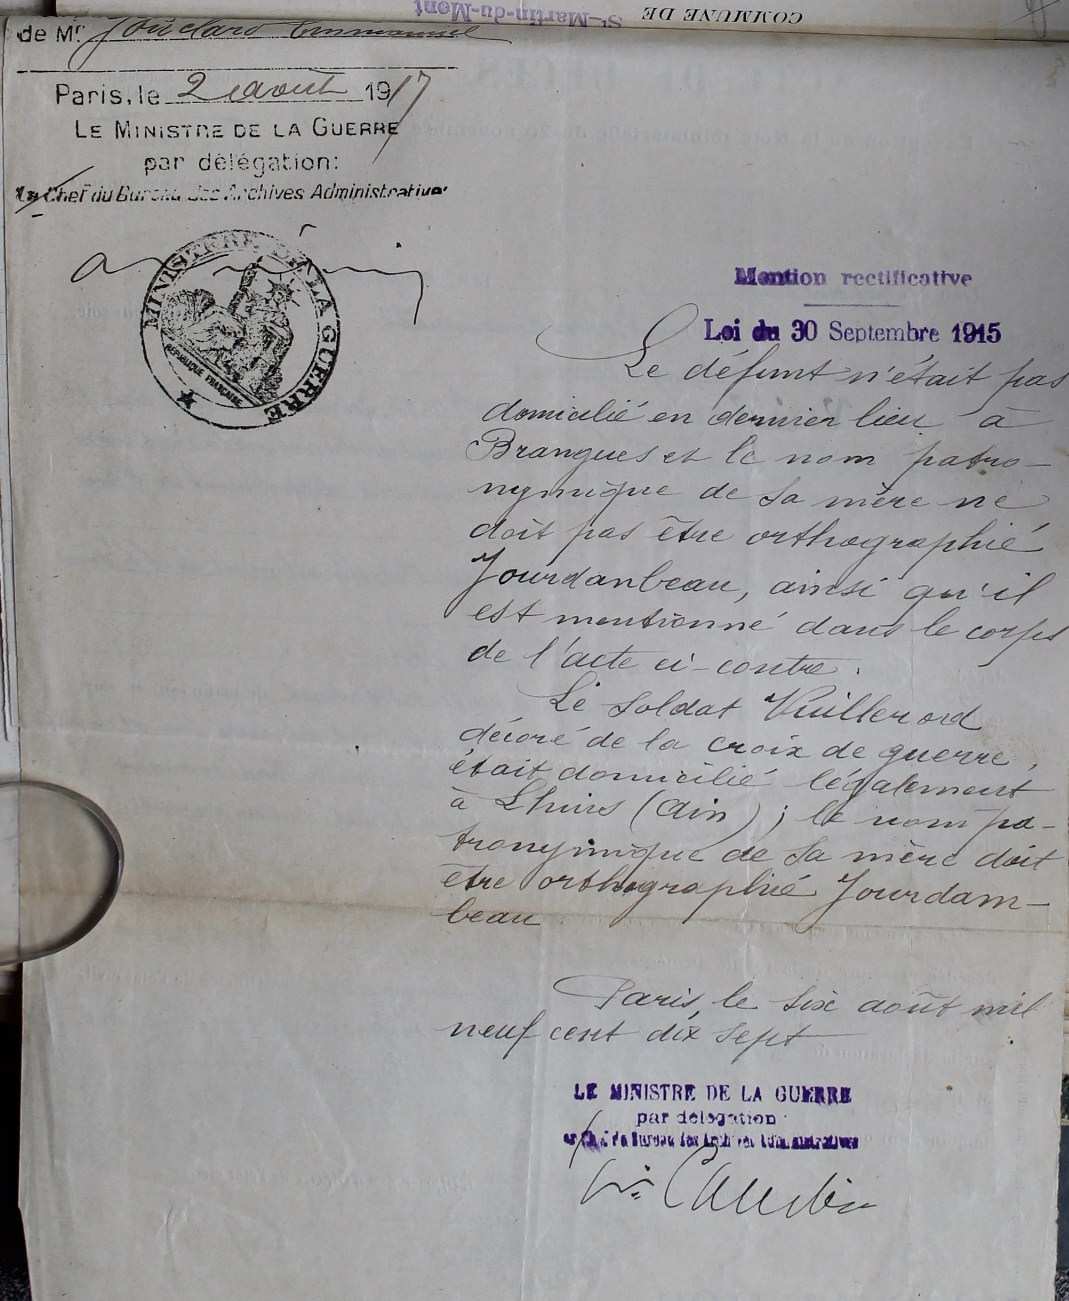 COMMUNE DE St-Martin-du-Mont
de Mr Jouclard Emmanuel
Paris, le 2 août 1917
LE MINISTRE DE LA GUERRE
par délégation:
Le Chef du Bureau des Archives Administratives
MINISTÈRE DE LA GUERRE
RÉPUBLIQUE FRANÇAISE
Mention rectificative
Loi du 30 Septembre 1915
Le défunt n'était pas
domicilié en dernier lieu à
Brangues et le nom patro-
nymique de sa mère ne
doit pas être orthographié
Jourdanbeau, ainsi qu'il
est mentionné dans le corps
de l'acte ci-contre.
Le soldat Vuillerod
décoré de la croix de guerre,
était domicilié légalement
à Lhuis (Ain); le nom pa-
tronymique de sa mère doit
être orthographié Jourdam-
beau.
Paris, le six août mil
neuf cent dix sept
LE MINISTRE DE LA GUERRE
par délégation
Le Chef du Bureau des Archives Administratives